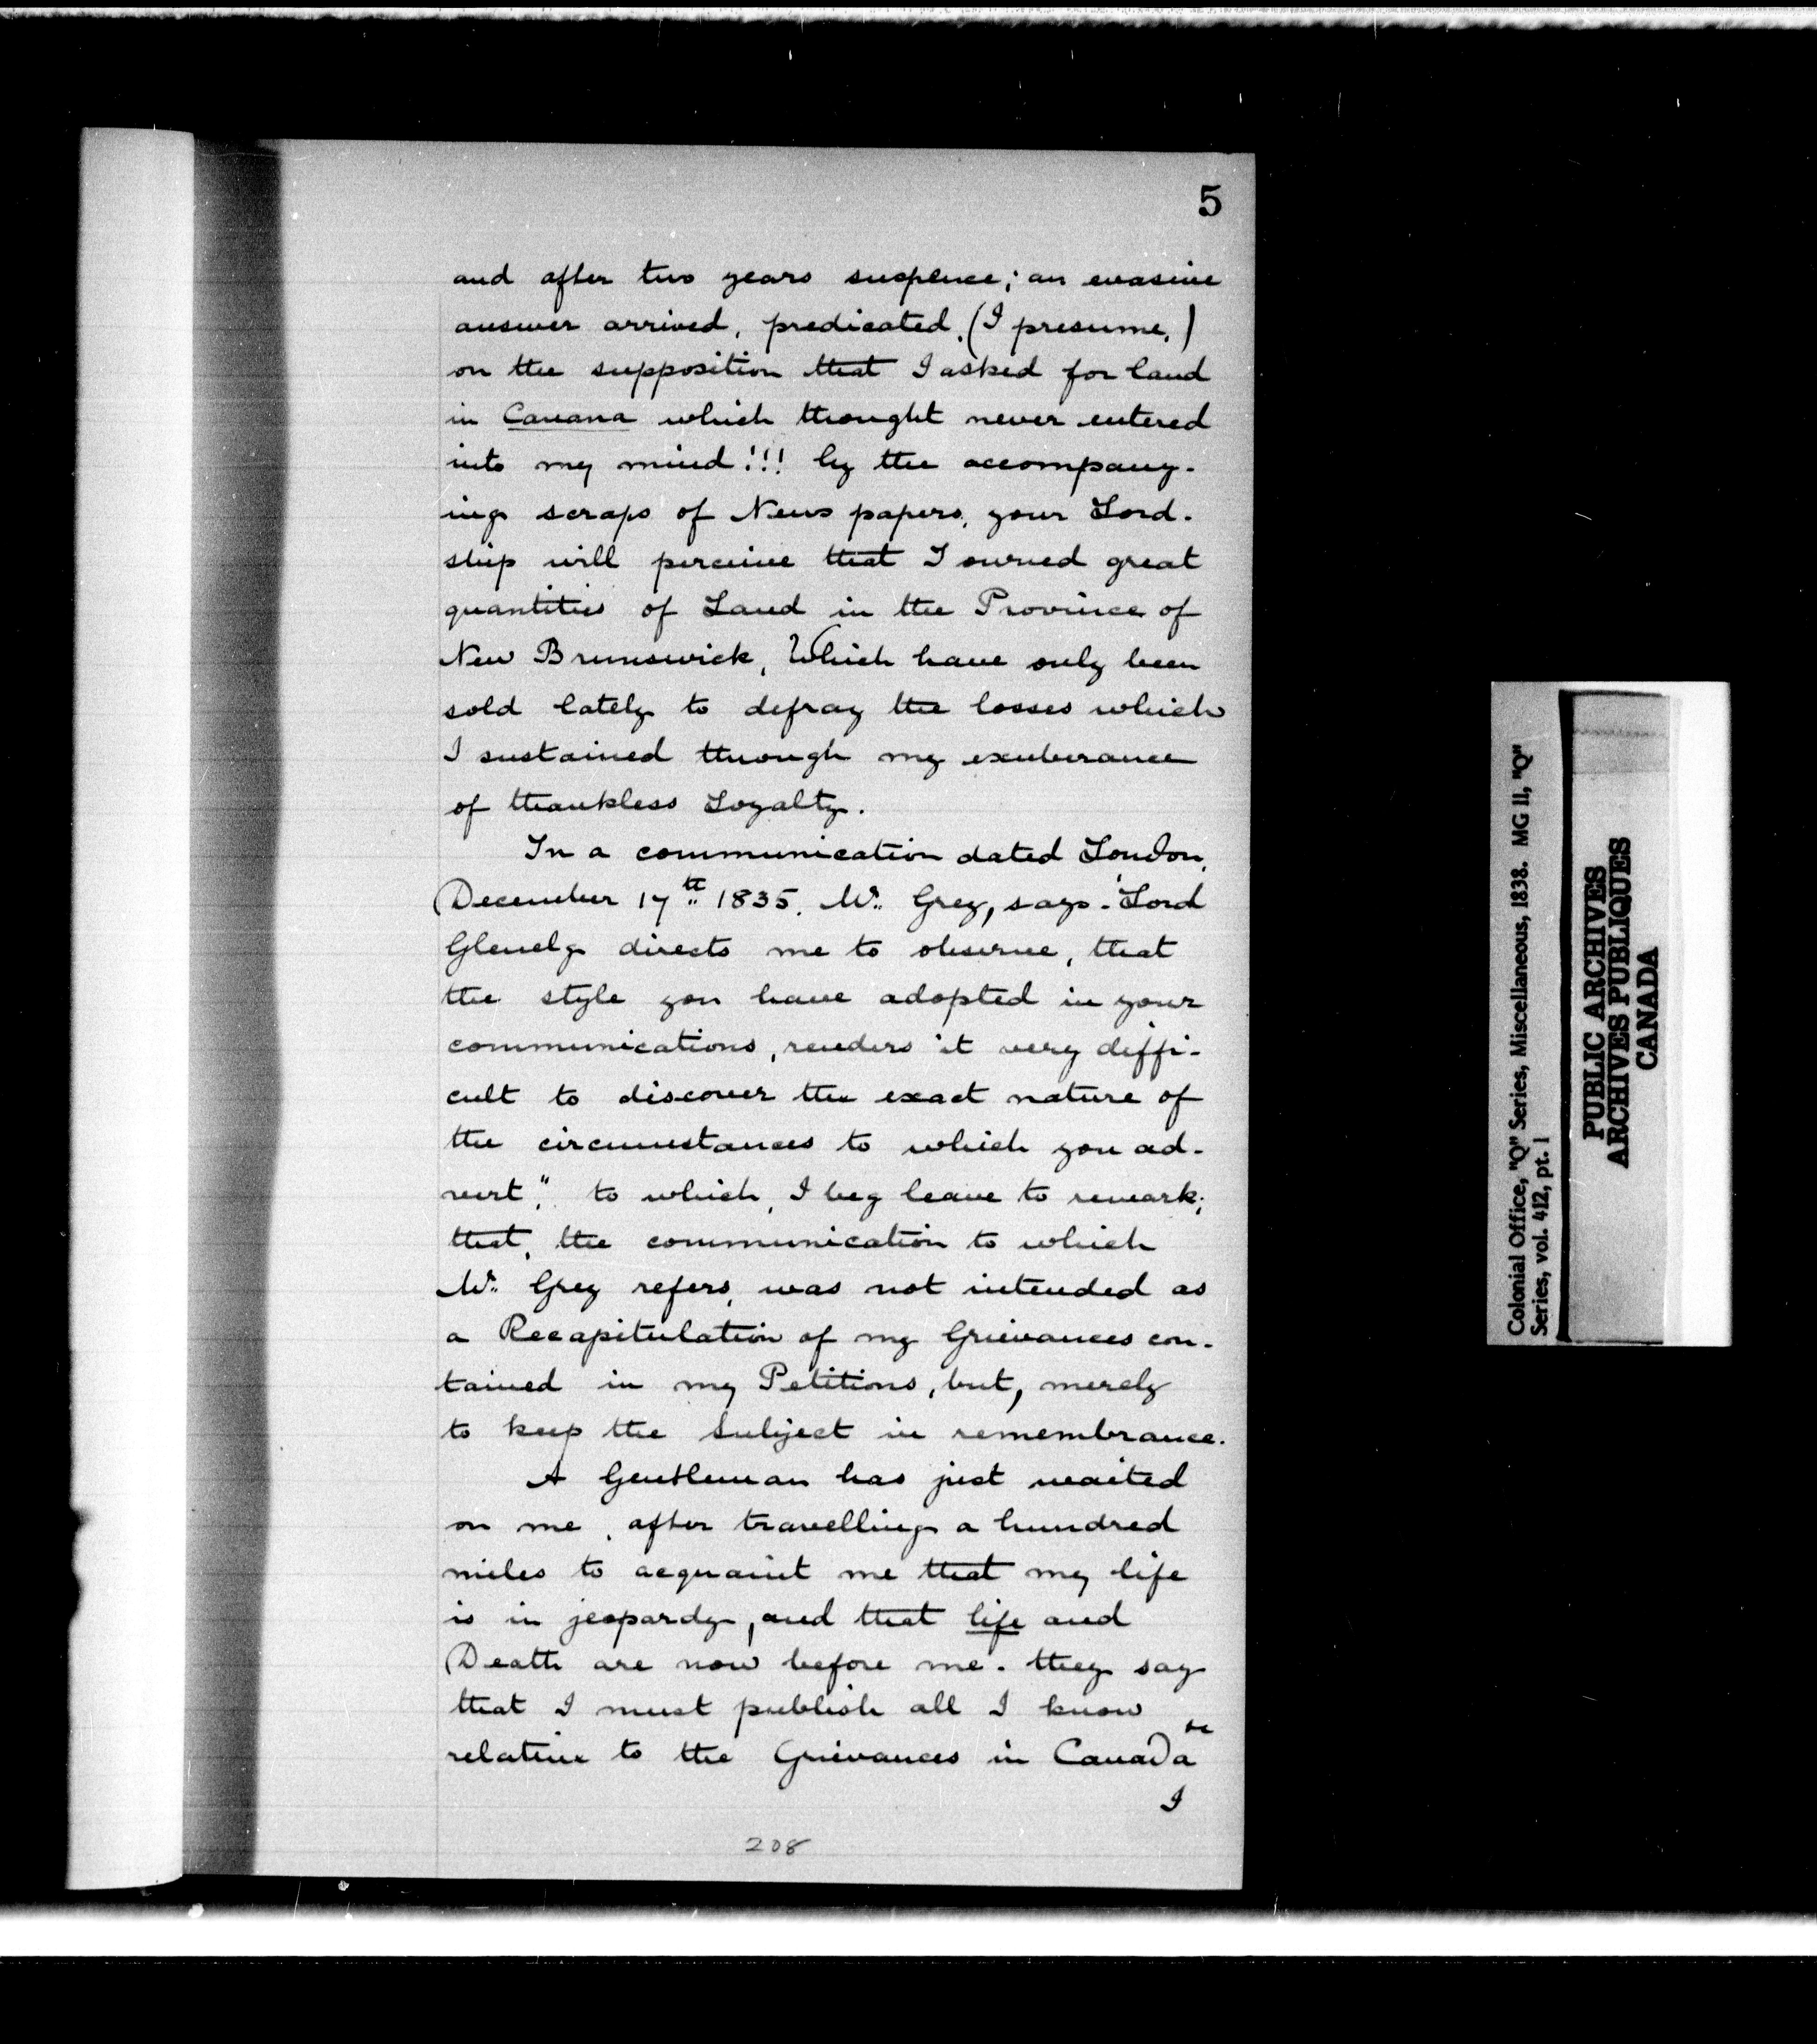 5
and after two years suspence; an evasive
answer arrived, predicated, (I presume,)
on the supposition that I asked for land
in Canana which thought never entered
into my mind!!! by the accompany-
ing scraps of News papers, your Lord-
ship will perceive that I owned great
quantities of Land in the Province of
New Brunswick, Which have only been
sold lately to defray the losses which
I sustained through my exuberance
of thankless Loyalty.
In a communication dated London,
December 17th 1835. Mr. Grey, says - "Lord
Glenelg directs me to observe, that
the style you have adopted in your
communications, renders it very diffi-
cult to discover the exact nature of
the circumstances to which you ad-
vert," to which, I beg leave to remark;
that, the communication to which
Mr. Grey refers, was not intended as
a Recapitulation of my Grievances con-
tained in my Petitions, but, merely
to keep the Subject in remembrance.
A Gentleman has just waited
on me, after travelling a hundred
miles to acquaint me that my life
is in jeopardy, and that life and
Death are now before me. they say
that I must publish all I know
relative to the Grievances in Canada
I
208
Colonial Office, "Q" Series, Miscellaneous, 1838. MG 11, "Q"
Series, vol. 412, pt. 1
PUBLIC ARCHIVES
ARCHIVES PUBLIQUES
CANADA